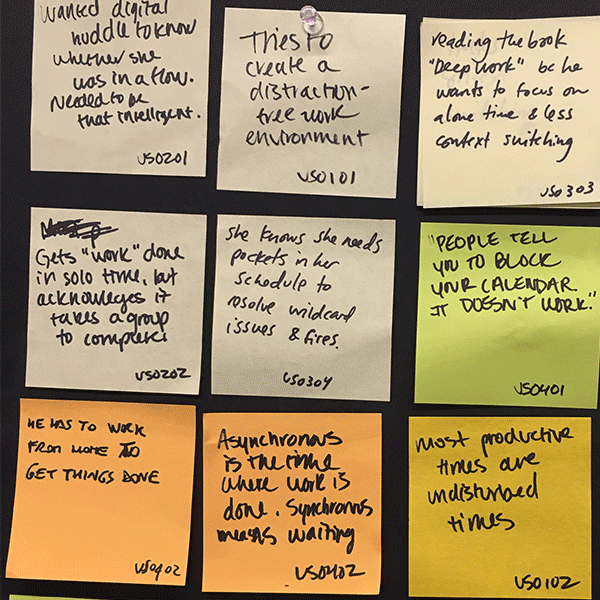 Wanted digital
huddle to know
whether she
was in a flow.
Needed to be
that intelligent.
US0201
Tries to
create a
distraction-
free work
environment
US0101
reading the book
"Deep work" bc he
wants to focus on
alone time & less
context switching
US0303
Gets "work" done
in solo time, but
acknowleges it
takes a group
to complete
US0202
she knows she needs
pockets in her
schedule to
resolve wildcard
issues & fires.
US0304
"PEOPLE TELL
YOU TO BLOCK
YOUR CALENDAR.
IT DOESN'T WORK."
US0401
HE HAS TO WORK
FROM HOME TO
GET THINGS DONE
US0402
Asynchronous
is the time
where work is
done. Synchronous
means waiting
US0402
most productive
times are
undisturbed
times
US0102